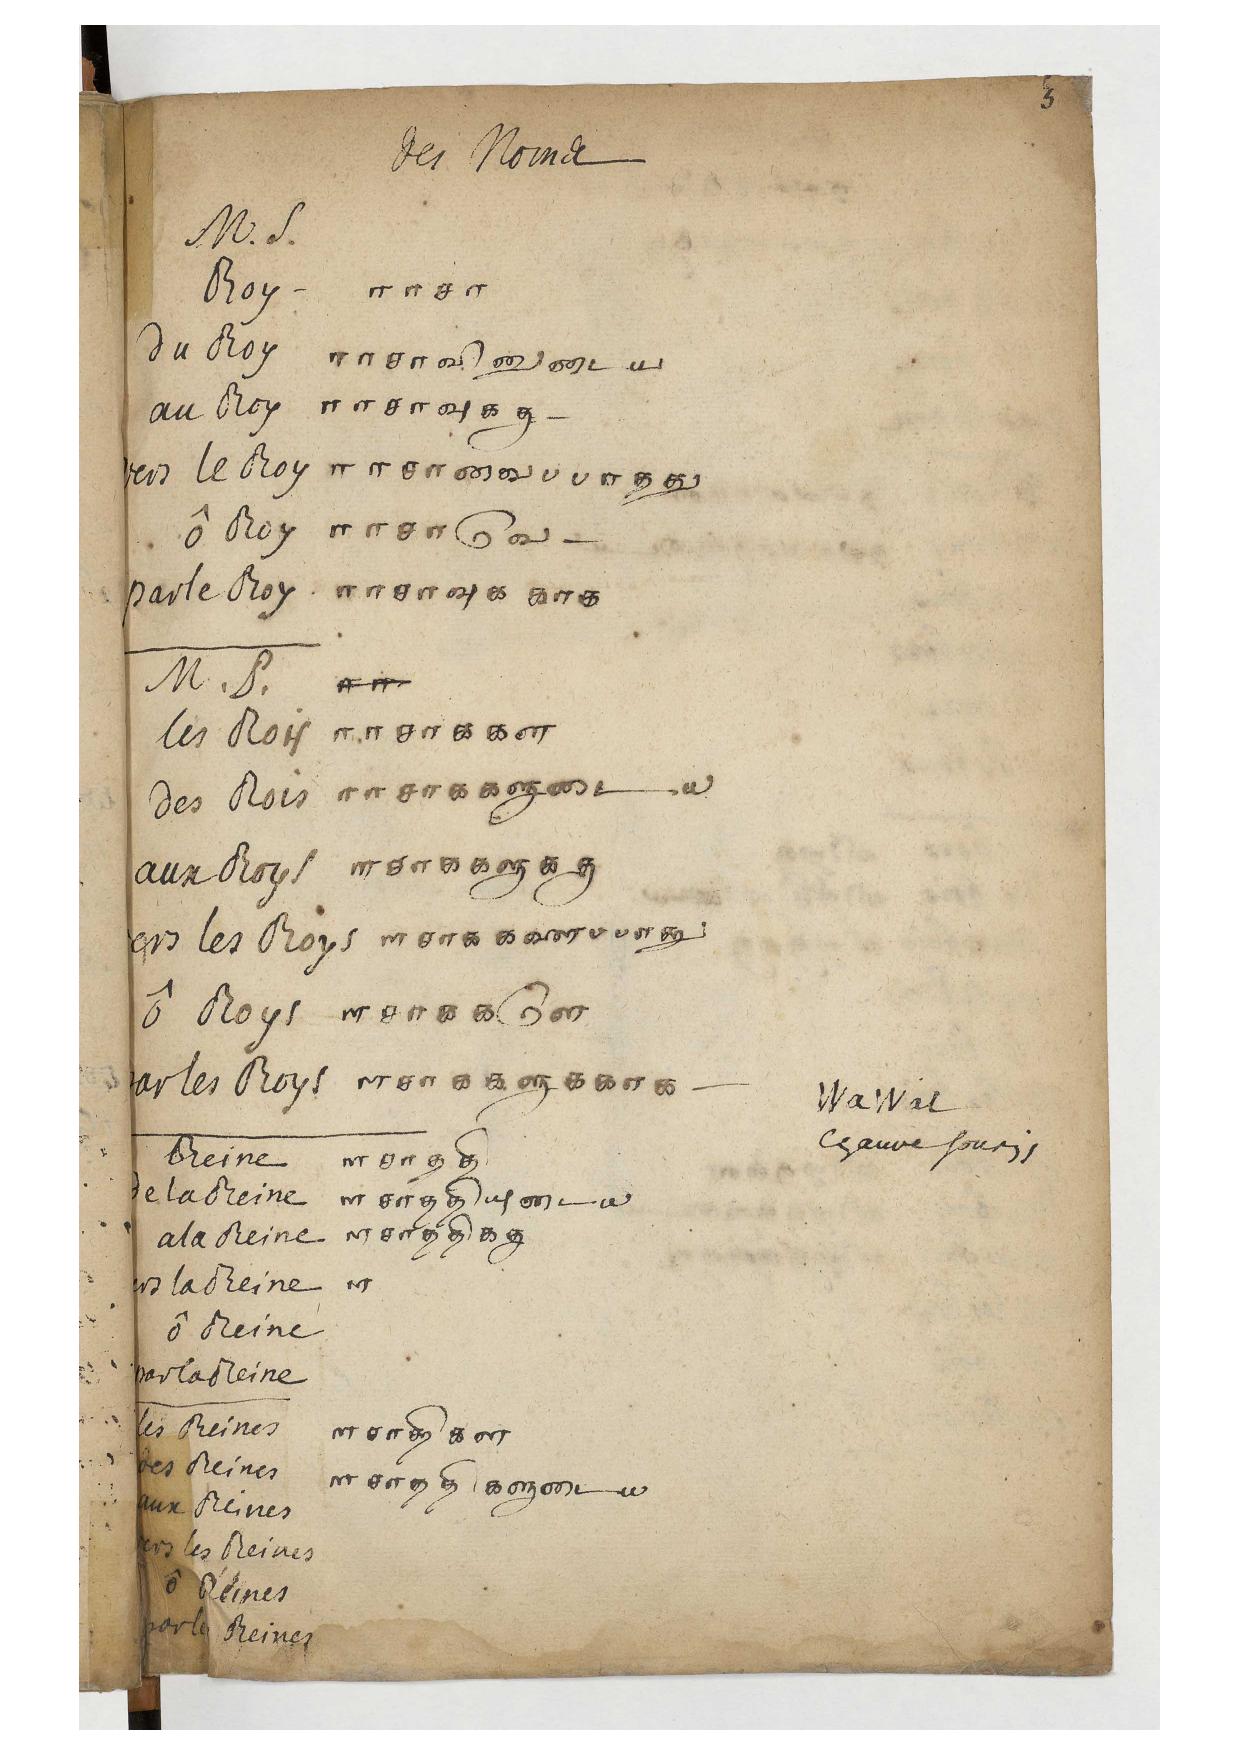 5
des Noms
M. S.
Roy - ராசா
du Roy ராசாவினுடைய
au Roy ராசாவுககு
vers le Roy ராசாவைபபாதது
ô Roy ராசாவே
par le Roy ராசாவுககாக
M. P.
les Rois ராசாககள
des Rois ராசாககளுடைய
aux Roys ராசாககளுககு
ers les Roys ராசாககளைபபாது
ô Roys ராசாககளே
par les Roys ராசாககளுககாக
WaWal
cgauve souris
Reine ராசாததி
de la Reine ராசாததியுடைய
a la Reine ராசாததிககு
ers la Reine ரா
ô Reine
par la Reine
les Reines ராசாதிகள
des Reines ராசாததிகளுடைய
aux Reines
vers les Reines
ô Reines
par les Reines